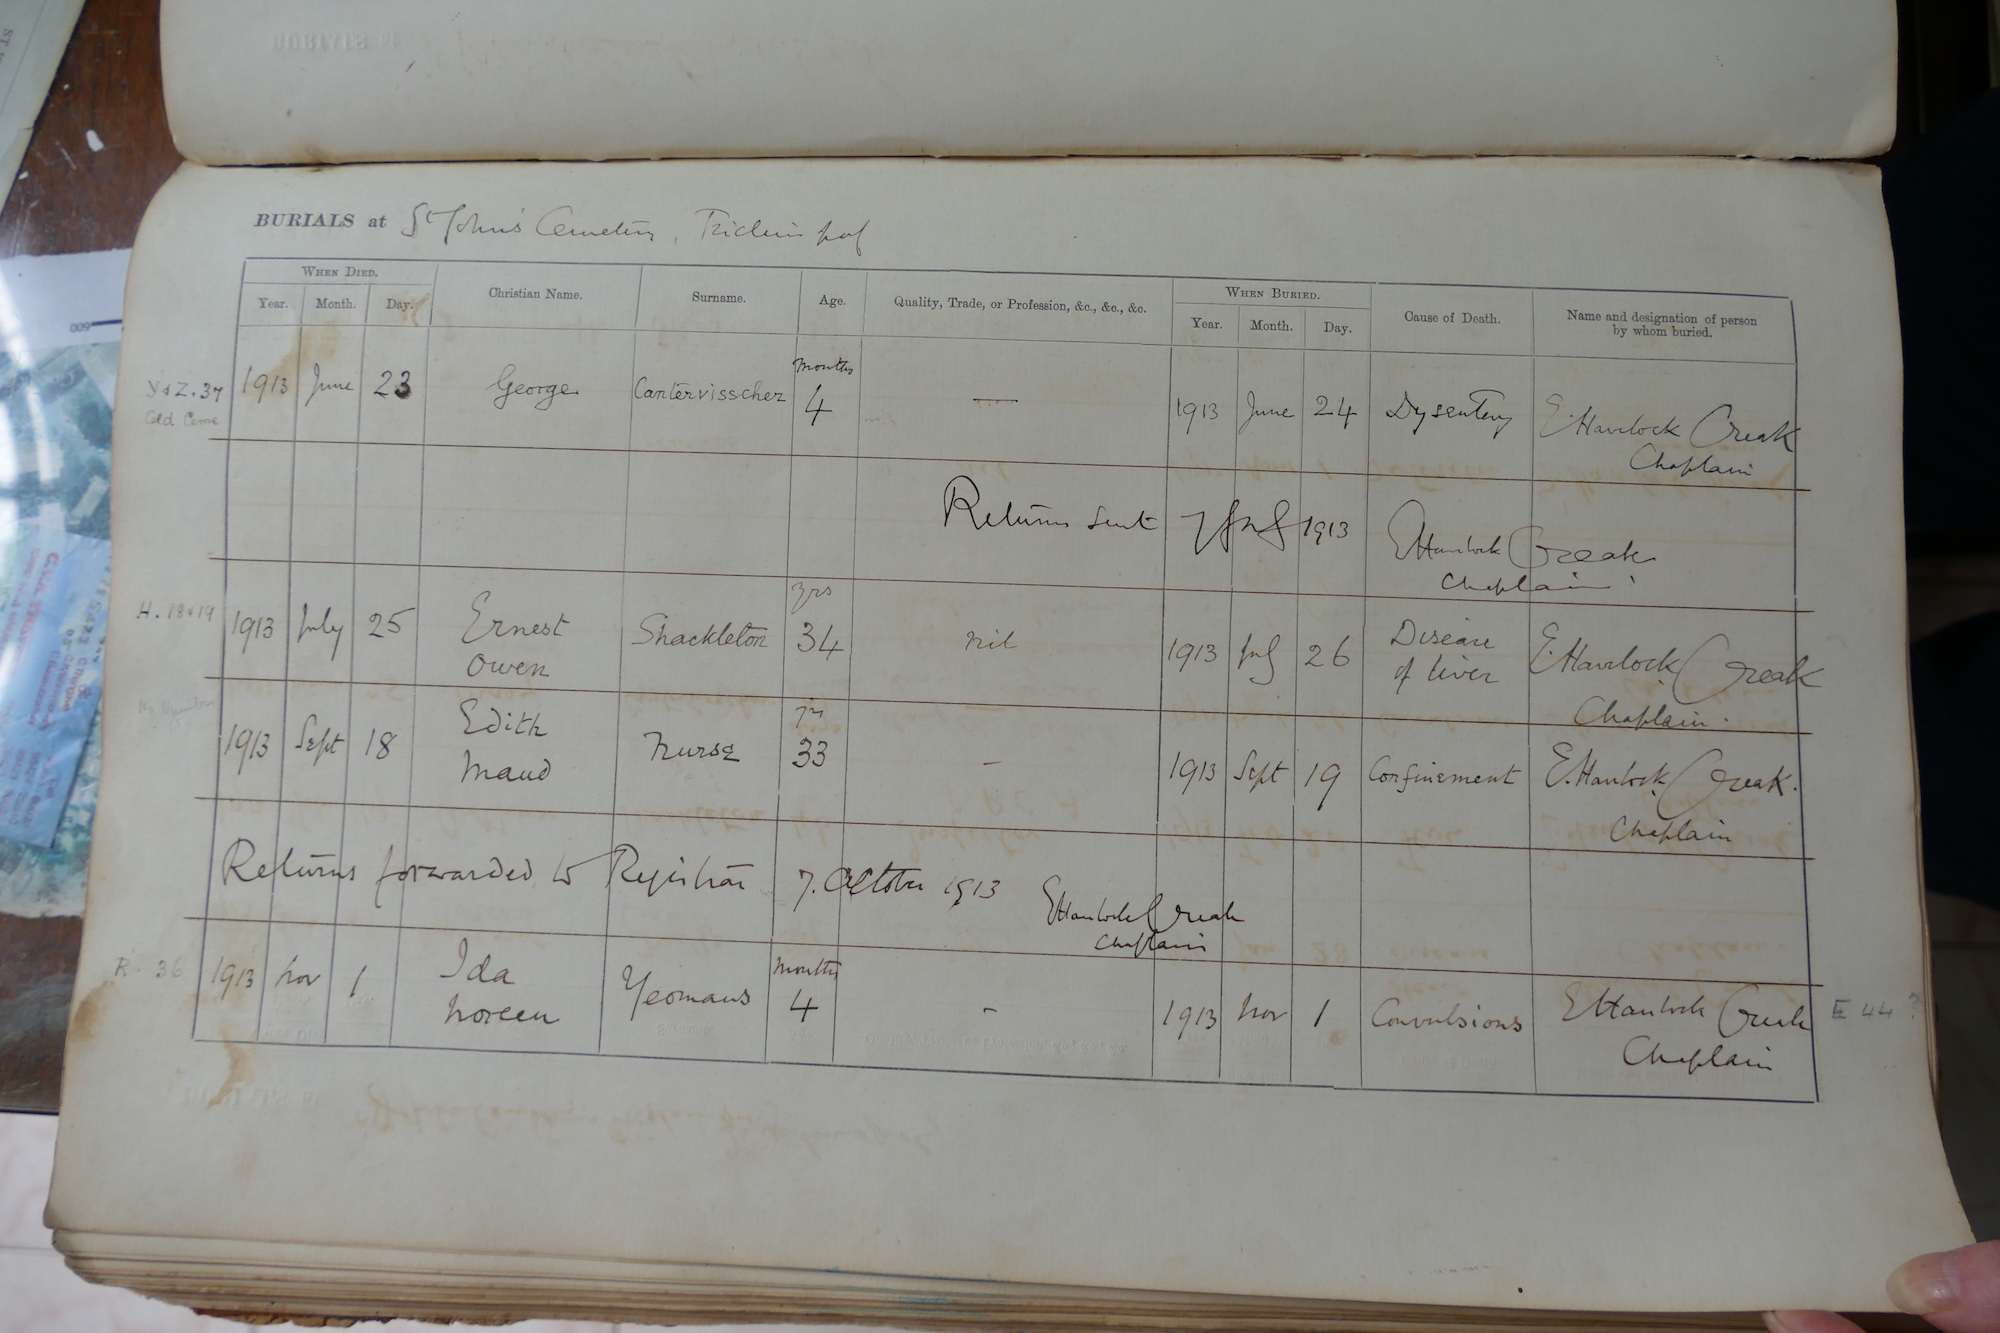 BURIALS at St John's Cemetery, Trichinopoly
WHEN DIED. Christian Name. Surname. Age. Quality, Trade, or Profession, &c., &c., &c. WHEN BURIED. Cause of Death. Name and designation of person by whom buried.
Year. Month. Day. Year. Month. Day.
Y & Z. 37
Old Ceme
1913 June 23 George Cantervisscher months 4 — 1913 June 24 Dysentery E. Havelock Creak
Chaplain
Returns sent 7 July 1913 E Havelock Creak
Chaplain
H. 18 & 19
1913 July 25 Ernest Owen Shackleton yrs 34 nil 1913 July 26 Disease of liver E. Havelock Creak
Chaplain.
No Number
1913 Sept 18 Edith Maud Nurse yrs 33 – 1913 Sept 19 Confinement E. Havelock Creak.
Chaplain
Returns forwarded to Registrar 7. October 1913 E Havelock Creak
Chaplain
R. 36
1913 Nov 1 Ida Noreen Yeomans months 4 – 1913 Nov 1 Convulsions E Havelock Creak
Chaplain
E 44 ?
600